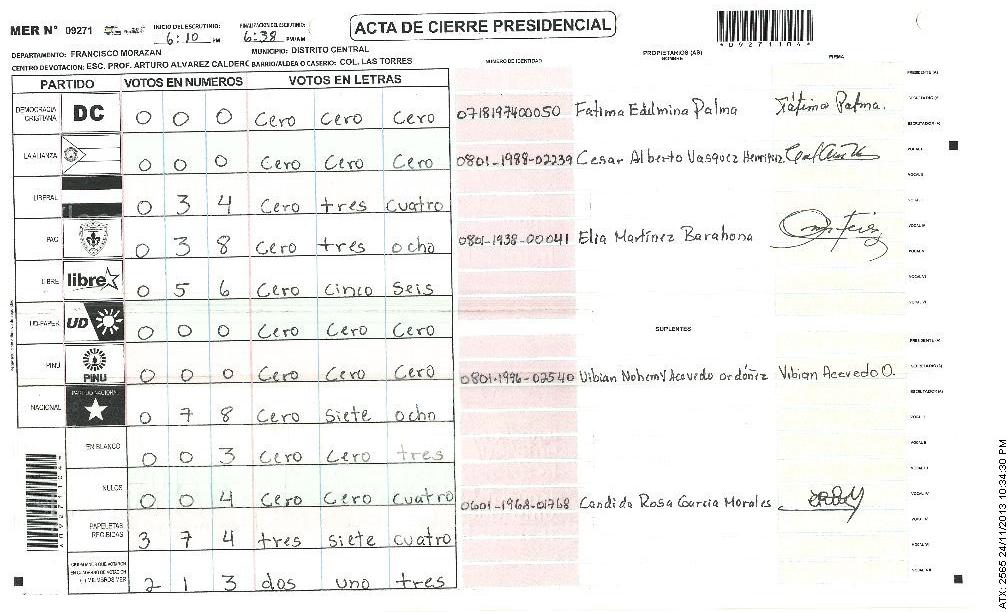 MER N° 09271 INICIO DEL ESCRUTINIO: 6:10 PM FINALIZACION DEL ESCRUTINIO: 6:38 PM/AM ACTA DE CIERRE PRESIDENCIAL *09271104*
DEPARTAMENTO: FRANCISCO MORAZAN MUNICIPIO: DISTRITO CENTRAL
CENTRO DE VOTACION: ESC. PROF. ARTURO ALVAREZ CALDERC BARRIO/ALDEA O CASERIO: COL. LAS TORRES
NUMERO DE IDENTIDAD PROPIETARIOS (AS) NOMBRE FIRMA
PARTIDO VOTOS EN NUMEROS VOTOS EN LETRAS
DEMOCRACIA CRISTIANA DC 0 0 0 Cero Cero Cero
LA ALIANZA 0 0 0 Cero Cero Cero
LIBERAL 0 3 4 Cero tres cuatro
PAC 0 3 8 Cero tres ocho
LIBRE libre 0 5 6 Cero Cinco Seis
UD-FAPER UD 0 0 0 Cero Cero Cero
PINU PINU 0 0 0 Cero Cero Cero
NACIONAL PARTIDO NACIONAL 0 7 8 Cero Siete ocho
EN BLANCO 0 0 3 Cero Cero tres
NULOS 0 0 4 Cero Cero Cuatro
PAPELETAS RECIBIDAS 3 7 4 tres siete cuatro
2 1 3 dos uno tres
PRESIDENTE (A)
0718197400050 Fatima Edelmina Palma Fátima Palma. SECRETARIO (A)
ESCRUTADOR (A)
0801-1988-02239 Cesar Alberto Vasquez VOCAL I
VOCAL II
VOCAL III
0801-1938-00041 Elia Martinez Barahona VOCAL IV
VOCAL V
VOCAL VI
VOCAL VII
SUPLENTES
PRESIDENTE (A)
0801-1996-02540 Vibian Nohemy Acevedo ordóñez Vibian Acevedo O. SECRETARIO (A)
ESCRUTADOR (A)
VOCAL I
VOCAL II
VOCAL III
0601-1968-01768 Candida Rosa Garcia Morales VOCAL IV
VOCAL V
VOCAL VI
VOCAL VII
ATX: 2565 24/11/2013 10:34:30 PM